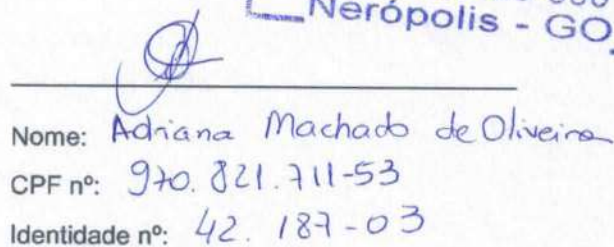 Nerópolis - GO.
Nome: Adriana Machado de Oliveira
CPF nº: 970.821.711-53
Identidade nº: 42.187-03